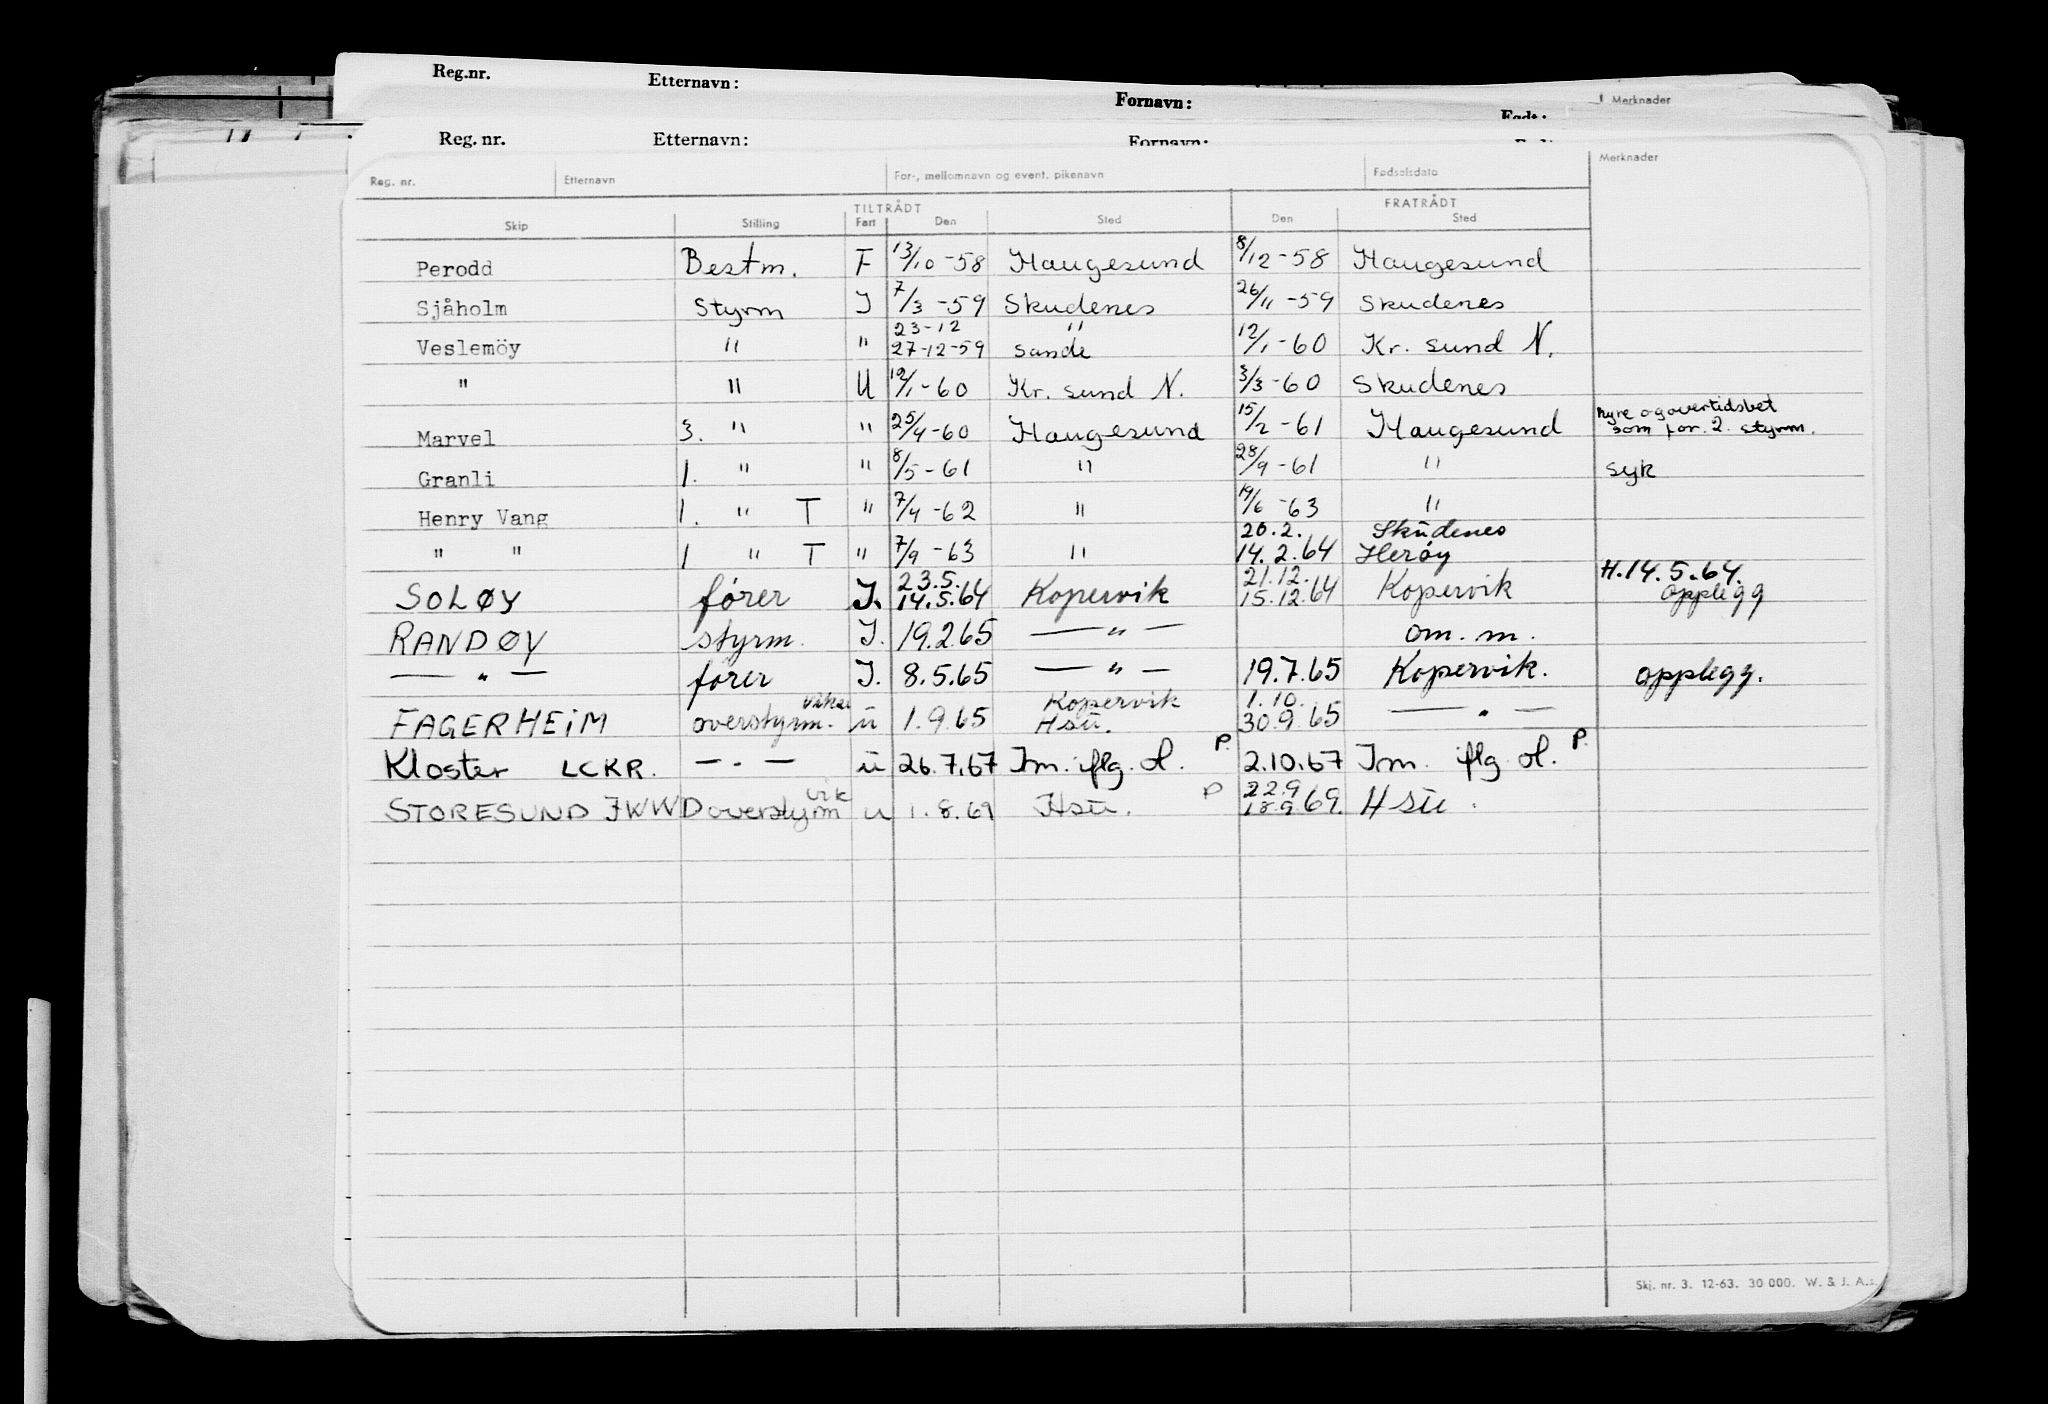 Reg.nr. Etternavn: Fornavn: Født: Merknader
Reg. nr. Etternavn: Fornavn:
Reg. nr. Etternavn For-, mellomnavn og event. pikenavn Fødselsdata Merknader
TILTRÅDT FRATRÅDT
Skip Stilling Fart Den Sted Den Sted
Perodd Bestm. F 13/10-58 Haugesund 8/12-58 Haugesund
Sjåholm Styrm J 7/3-59 Skudenes 26/11-59 Skudenes
23-12 "
Veslemöy " " 27-12-59 Sande 12/1-60 Kr. sund N.
" " U 12/1-60 Kr. sund N. 3/3-60 Skudenes
Marvel 3. " " 25/4-60 Haugesund 15/2-61 Haugesund hyre og overtidsbet
som for. 2. styrm.
Granli 1. " " 8/5-61 " 28/9-61 " syk
Henry Vang 1. " T " 7/4-62 " 19/6-63 "
20.2. Skudenes
" " 1 " T " 7/9-63 " 14.2.64 Herøy
23.5. 21.12. H.14.5.64.
SOLØY fører J. 14.5.64 Kopervik 15.12.64 Kopervik opplegg
RANDØY styrm. J. 19.2.65 — " — om. m.
— " — fører J. 8.5.65 — " — 19.7.65 Kopervik. opplegg.
vikar Kopervik 1.10.
FAGERHEIM overstyrm. ü 1.9.65 Hsü. 30.9.65 — " —
Kloster LCKR. — . — ü 26.7.67 Jm. flg. A. P. 2.10.67 Jm. flg. A. P.
vik 22.9
STORESUND JWWD overstyrm u 1.8.69 Hsü. P 18.9.69. Hsü.
Skj. nr. 3. 12-63. 30 000. W. & J. A.s.